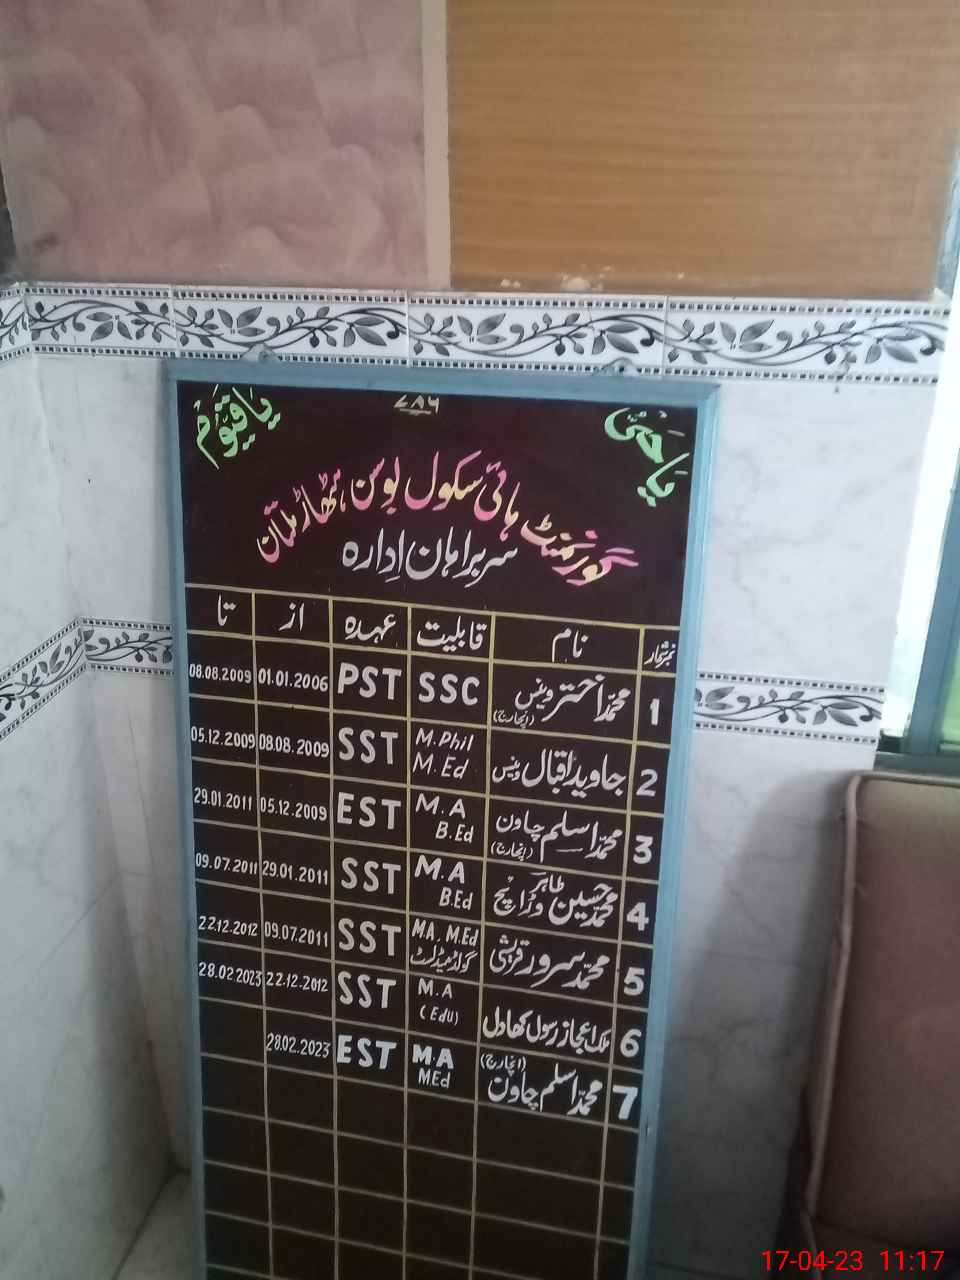 ۷۸۶
یا حیّ یا قیّوم
گورنمنٹ ہائی سکول بوسن ہٹھاڑ ملتان
سربراہان اِدارہ
نمبر شمار نام قابلیت عہدہ از تا
1 محمد اختر وینس (انچارج) SSC PST 01.01.2006 08.08.2009
2 جاوید اقبال وینس M.Phil M.Ed SST 08.08.2009 05.12.2009
3 محمد اسلم چاون (انچارج) M.A B.Ed EST 05.12.2009 29.01.2011
4 محمد حسین طاہر وڑائچ M.A B.Ed SST 29.01.2011 09.07.2011
5 محمد سرور قریشی M.A, M.Ed گولڈمیڈلسٹ SST 09.07.2011 22.12.2012
6 ملک اعجاز رسول کھادل M.A (Edu) SST 22.12.2012 28.02.2023
7 محمد اسلم چاون (انچارج) M.A M.Ed EST 28.02.2023
17-04-23 11:17